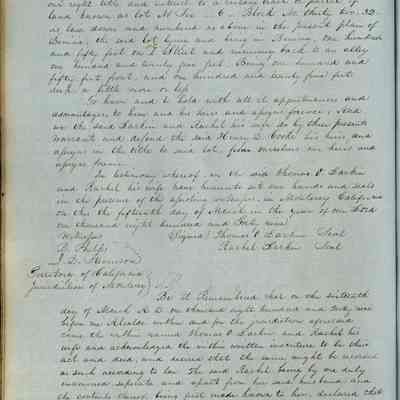 our right title and interest to a certain tract or parcel of
land known as lot No Six 6 Block No thirty two 32
as laid down and numbered as above in the present plan of
Benicia, the said lot lying and being in Benicia, one hundred
and fifty feet on I Street and running back to an alley
one hundred and twenty five feet. Being one hundred and
fifty feet front, and one hundred and twenty five feet
deep a little more or less
To have and to hold with all its appurtenances and
advantages to him and his heirs and assigns forever; And
we the said Larkin and Rachel his wife do by these presents
warrant and defend the said Henry D. Cooke his heirs and
assigns in the title to said lot, from ourselves our heirs and
assigns forever.
In testimony whereof, we the said Thomas O. Larkin
and Rachel his wife have hereunto set our hands and seals
in the presence of the subscribing witnesses, in Monterey California
on this the fifteenth day of March in the year of our Lord
one thousand eight hundred and Forty nine
Witnesses Signed Thomas O. Larkin Seal
D. Phelps Rachel Larkin Seal
J. D.
Territory of California
Jurisdiction of Monterey
Be it Remembered that on the sixteenth
day of March A.D. one thousand eight hundred and forty nine
before me Alcalde within and for the jurisdiction aforesaid
came the within named Thomas O. Larkin and Rachel his
wife and acknowledged the within written indenture to be their
act and deed, and desired that the same might be recorded
as such according to law. The said Rachel being by me duly
examined separate and apart from her said husband and
the contents thereof being first made known to her, declared that